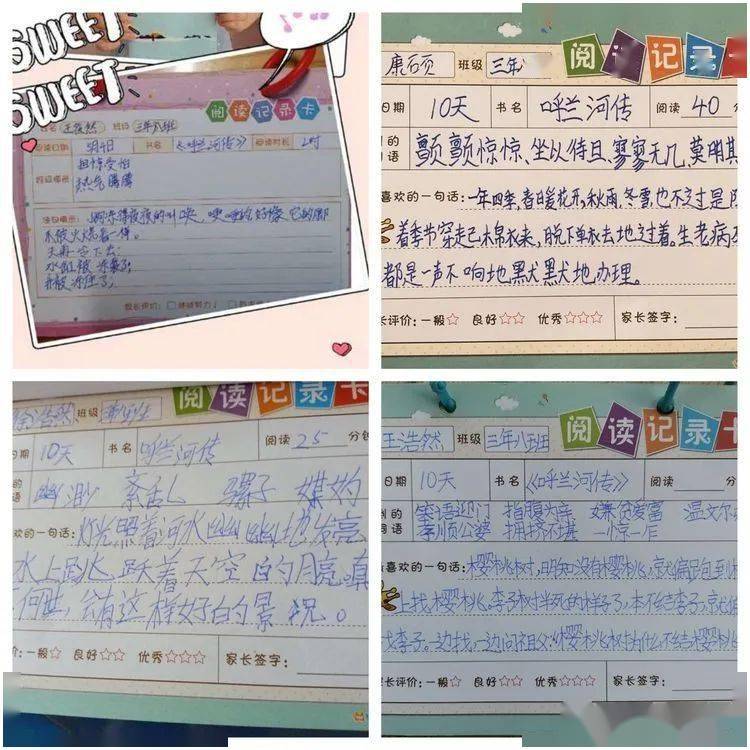 SWEET
SWEET
阅读记录卡
班级 三年八班
书名 《呼兰河传》 阅读时长
担惊受怕
热气腾腾
水缸被冻裂了;
井被冻住了;
家长评价: 继续努力!
康石页 班级 三年
阅读记录卡
日期 10天 书名 呼兰河传 阅读 40 分
颤颤惊惊、坐以待旦、寥寥无几、莫明其
喜欢的一句话: 一年四季,春日暖花开,秋雨、冬雪,也不过是
着季节穿走己木棉衣来,脱下单衣去地过着。生老病
都是一声不响地默默地办理。
长评价: 一般☆ 良好☆☆ 优秀☆☆☆ 家长签字:
徐浩然 班级
阅读记录卡
日期 10天 书名 呼兰河传 阅读 25 分钟
幽渺 紊乱 骡子 媒妁
欢的一句话: 灯光照着河水幽幽地发亮
水上跳跃着天空的月亮。真
何世,会有这样好的景况。
价: 一般☆ 良好☆☆ 优秀☆☆☆ 家长签字:
王浩然 班级 三年八班
阅读记录卡
日期 10天 书名 《呼兰河传》 阅读 分
笑语迎门 指腹为亲 嫌贫爱富 温文尔
孝顺公婆 拥挤不堪 一惊一乍
喜欢的一句话: 樱桃树,明知没有樱桃,就偏跑到树
上找樱桃。李子树半死的样子了,本不结李子,就偏
找李子。边找,一边问祖父:樱桃树为什么不结樱桃
家长评价: 一般☆ 良好☆☆ 优秀☆☆☆ 家长签字: